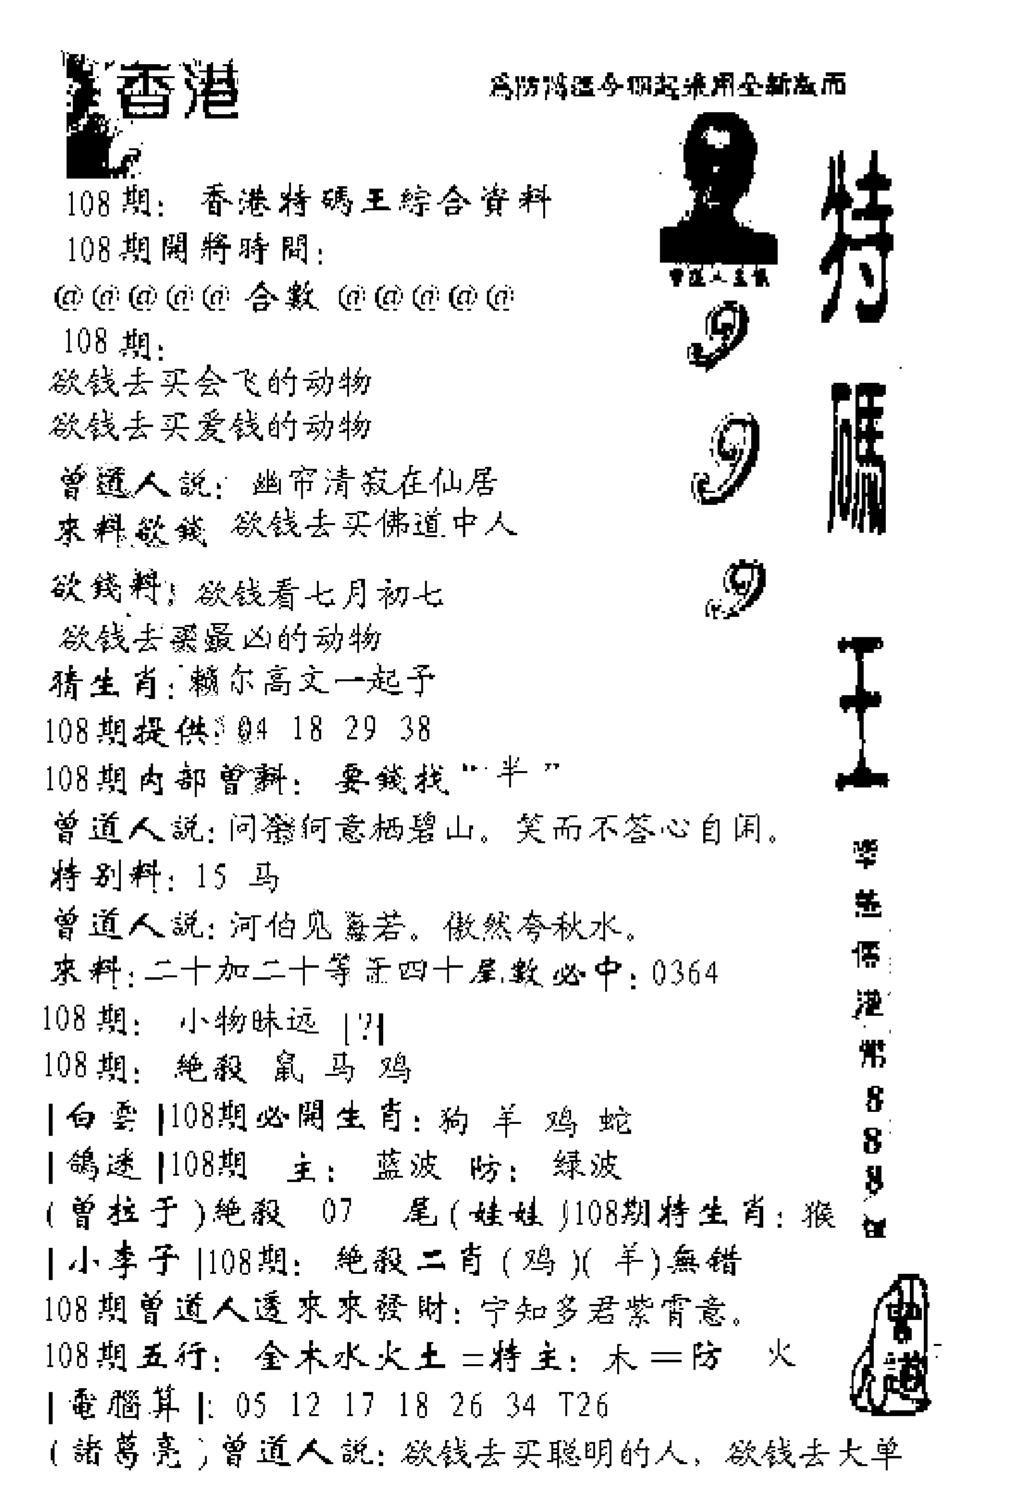 香港
特碼王
999
108期：香港特碼王綜合資料
108期開將時間：
@@@@@合數@@@@@
108期：
欲钱去买会飞的动物
欲钱去买爱钱的动物
曾道人説：幽帘清寂在仙居
來料欲錢 欲钱去买佛道中人
欲錢料：欲钱看七月初七
欲钱去买最凶的动物
猜生肖：尔高文一起予
108期提供：04 18 29 38
108期内部曾料：要錢找“半”
曾道人説：问何意栖碧山。笑而不答心自闲。
特别料：15 马
曾道人説：河伯见海若。傲然夸秋水。
來料：二十加二十等四十尾數必中：0364
108期：小物昧远 |?|
108期：絶殺 鼠 马 鸡
|白雲|108期必開生肖：狗 羊 鸡 蛇
|鴿迷|108期 主：蓝波 防：绿波
(曾拉于)絶殺 07 尾(娃娃)108期特生肖：猴
|小李子|108期：絶殺二肖(鸡)(羊)無錯
108期曾道人透來來發財：宁知多君紫霄意。
108期五行：金木水火土=特主：木=防 火
|電腦算|：05 12 17 18 26 34 T26
(諸葛亮)曾道人説：欲钱去买聪明的人，欲钱去大单